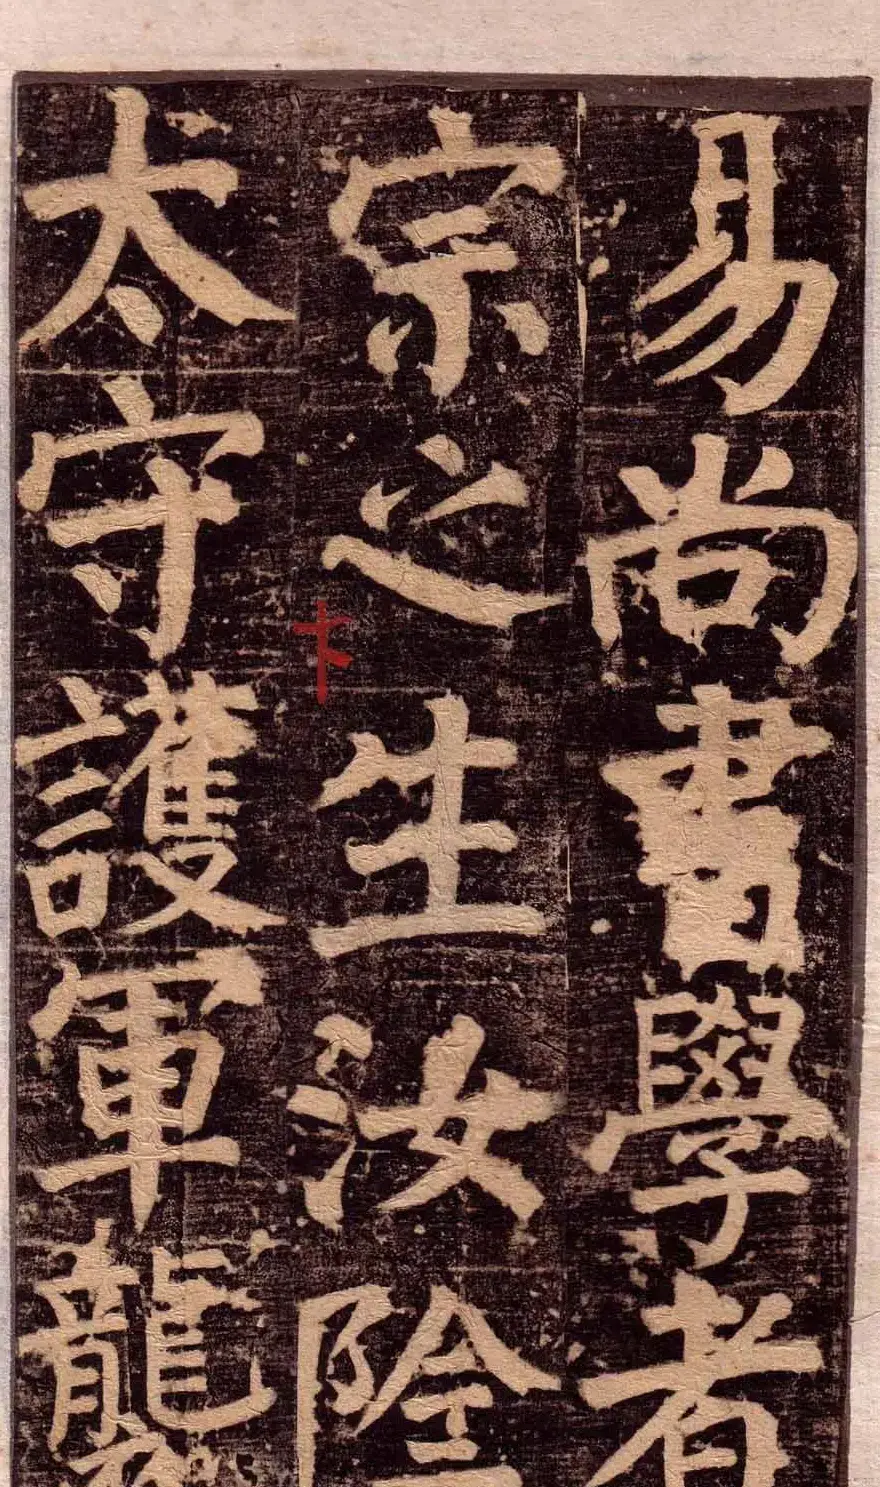 易尚書學者
宗之生汝陰
太守護軍襲